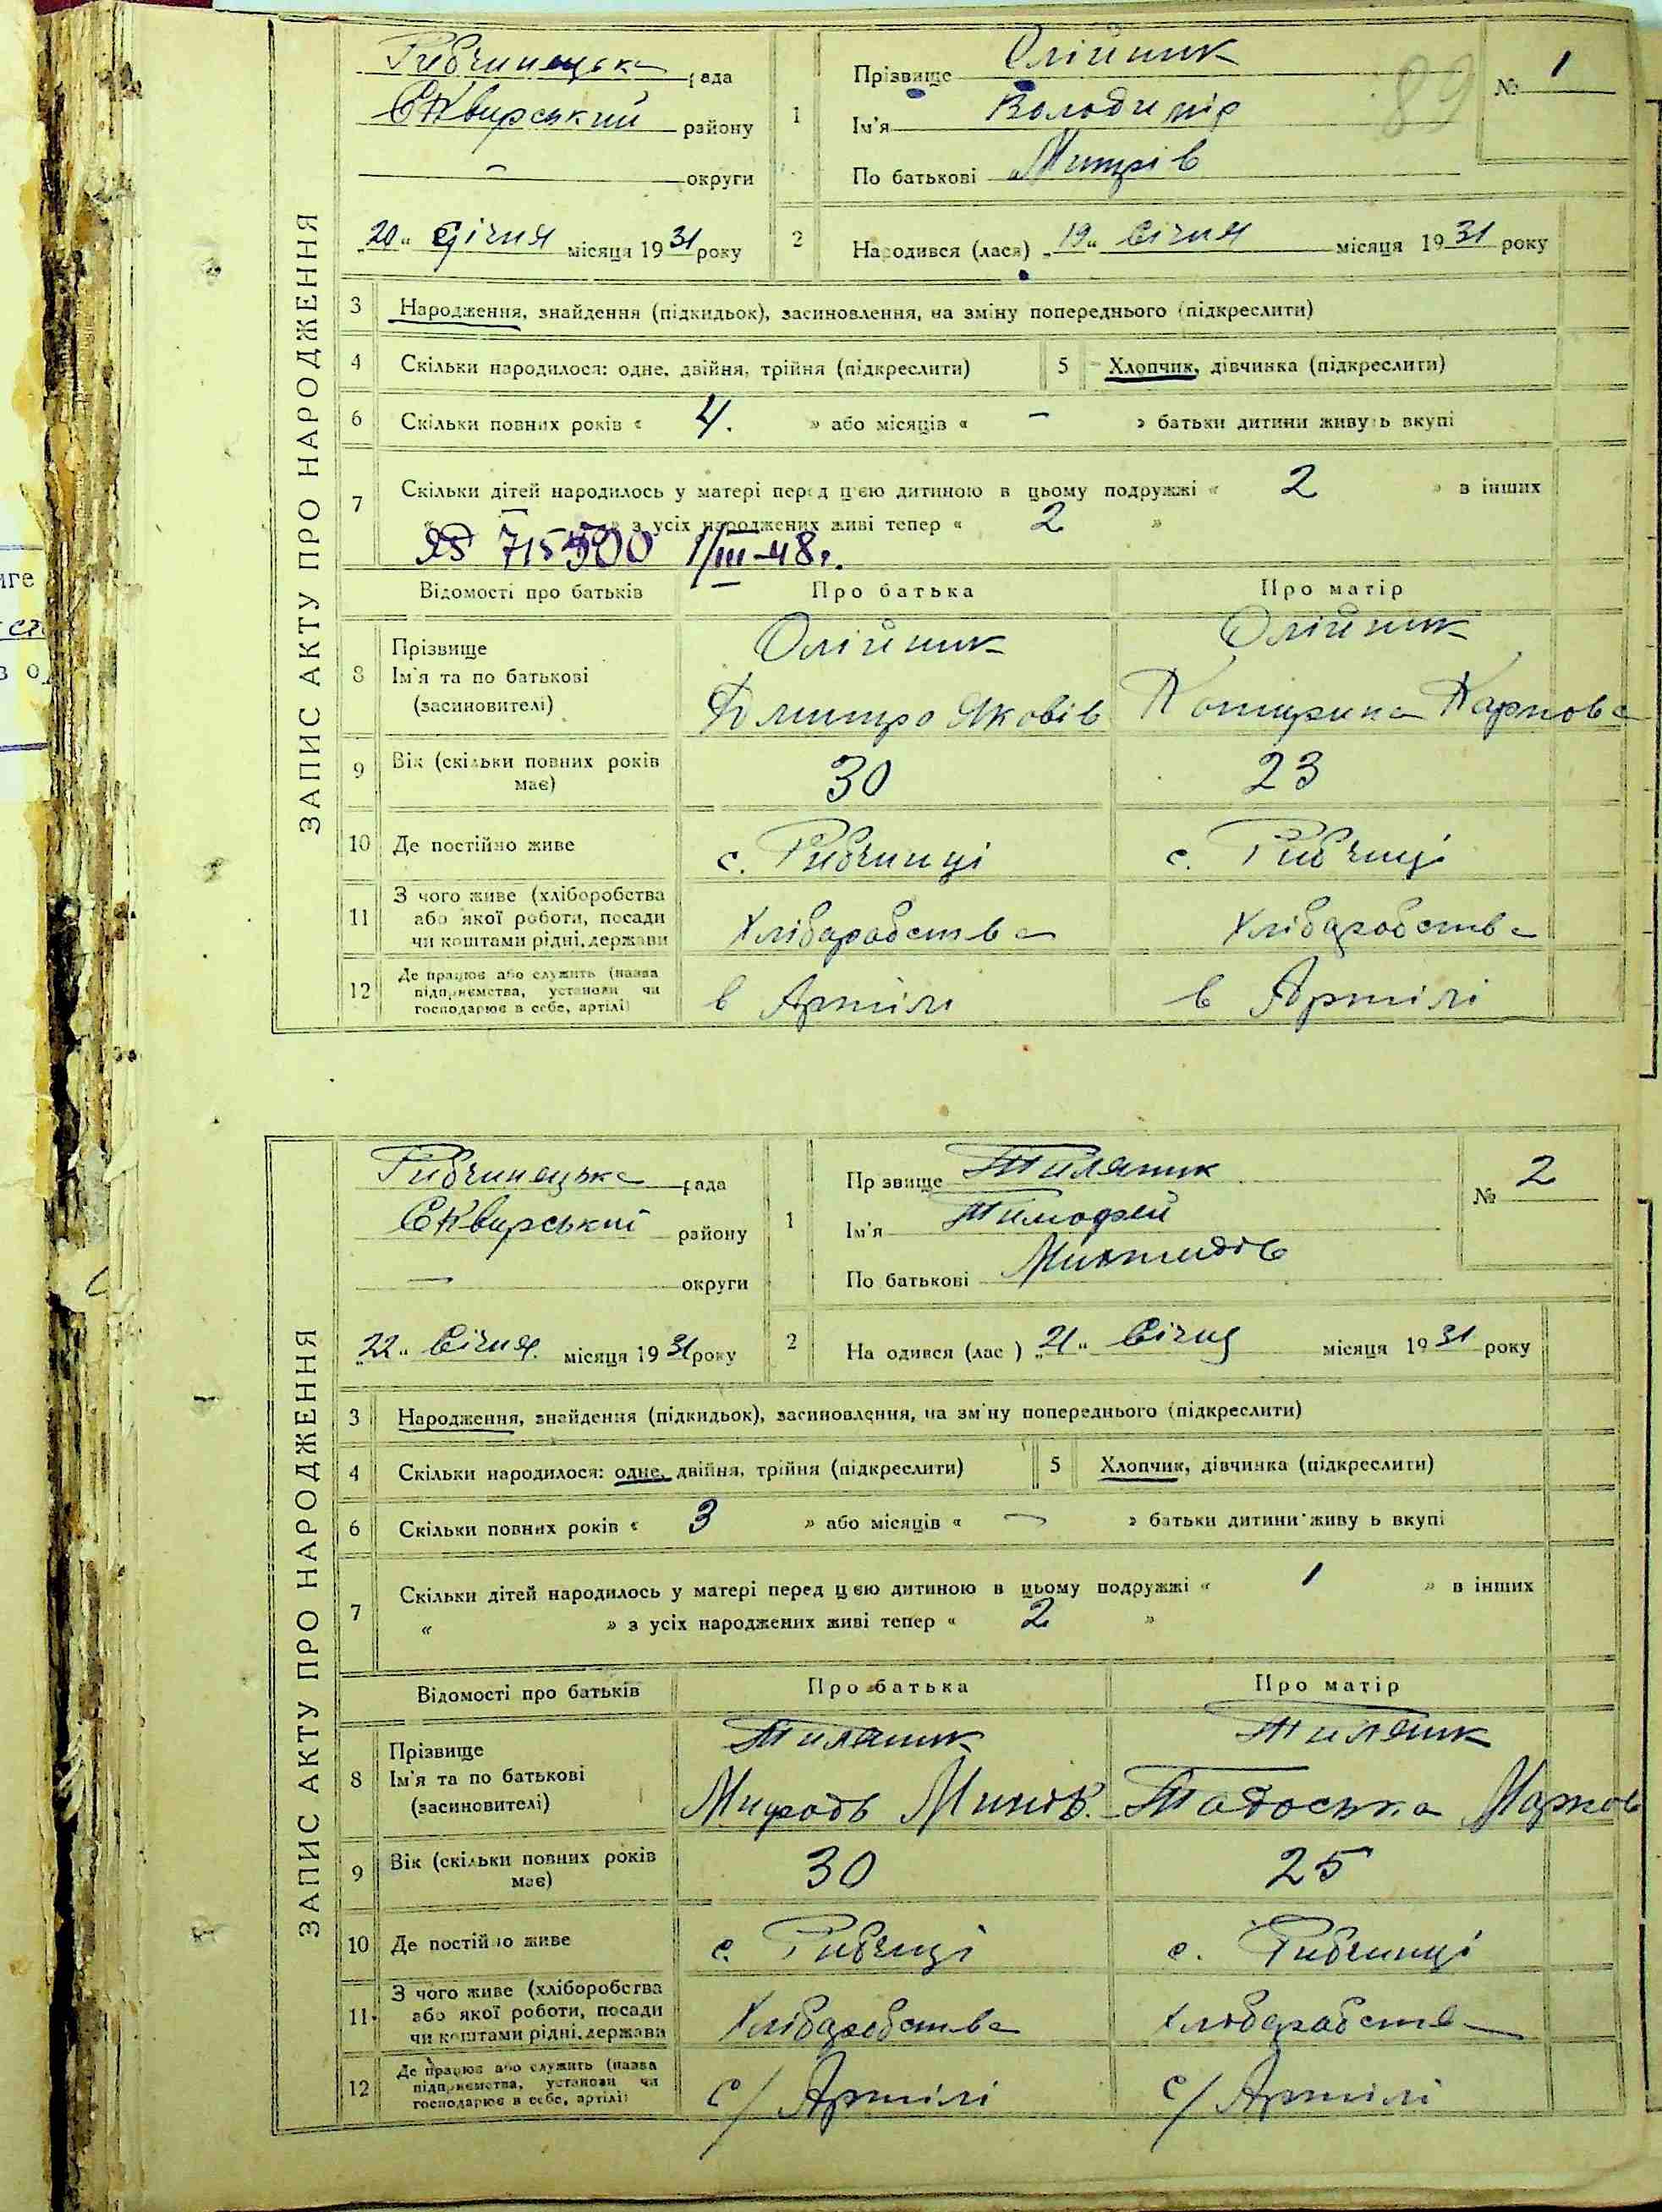 Рибчинецька рада
Сквирський району
— округи
„20“ Січня місяця 1931 року
1
Прізвище Олійник
Ім'я Володимір
По батькові Митрів
№ 1
89
2
Народився (лася) „19“ Січня місяця 1931 року
ЗАПИС АКТУ ПРО НАРОДЖЕННЯ
3 Народження, знайдення (підкидьок), засиновлення, на зміну попереднього (підкреслити)
4 Скільки народилося: одне, двійня, трійня (підкреслити)
5 Хлопчик, дівчинка (підкреслити)
6 Скільки повних років « 4. » або місяців « – » батьки дитини живуть вкупі
7 Скільки дітей народилось у матері перед цією дитиною в цьому подружжі « 2 » в інших
« – » з усіх народжених живі тепер « 2 »
715500 1/III-48г.
Відомості про батьків Про батька Про матір
8 Прізвище
Ім'я та по батькові
(засиновителі)
Олійник
Дмитро Яковів
Олійник
Катирина Карпова
9 Вік (скільки повних років
має)
30 23
10 Де постійно живе с. Рибчинці с. Рибчиці
11 З чого живе (хліборобства
або якої роботи, посади
чи коштами рідні, держави
Хлібаробства Хлібаробства
12 Де працює або служить (назва
підприємства, установи чи
господарює в себе, артілі)
в Артілі в Артілі
Рибчинецька рада
Сквирський району
— округи
„22“ Січня місяця 1931 року
1
Прізвище Тиляпик
Ім'я Тимофей
По батькові
№ 2
2
Народився (лас ) „21“ Січня місяця 1931 року
ЗАПИС АКТУ ПРО НАРОДЖЕННЯ
3 Народження, знайдення (підкидьок), засиновлення, на зміну попереднього (підкреслити)
4 Скільки народилося: одне, двійня, трійня (підкреслити)
5 Хлопчик, дівчинка (підкреслити)
6 Скільки повних років « 3 » або місяців « — » батьки дитини живуь вкупі
7 Скільки дітей народилось у матері перед цією дитиною в цьому подружжі « 1 » в інших
« » з усіх народжених живі тепер « 2 »
Відомості про батьків Про батька Про матір
8 Прізвище
Ім'я та по батькові
(засиновителі)
Тиляпик
Тиляпик
Тадоська Марков
9 Вік (скільки повних років
має)
30 25
10 Де постійно живе с. Рибчиці с. Рибчинці
11 З чого живе (хліборобства
або якої роботи, посади
чи коштами рідні, держави
Хлібаробства Хлібаробства
12 Де працює або служить (назва
підприємства, установи чи
господарює в себе, артілі)
С/Артілі С/Артілі